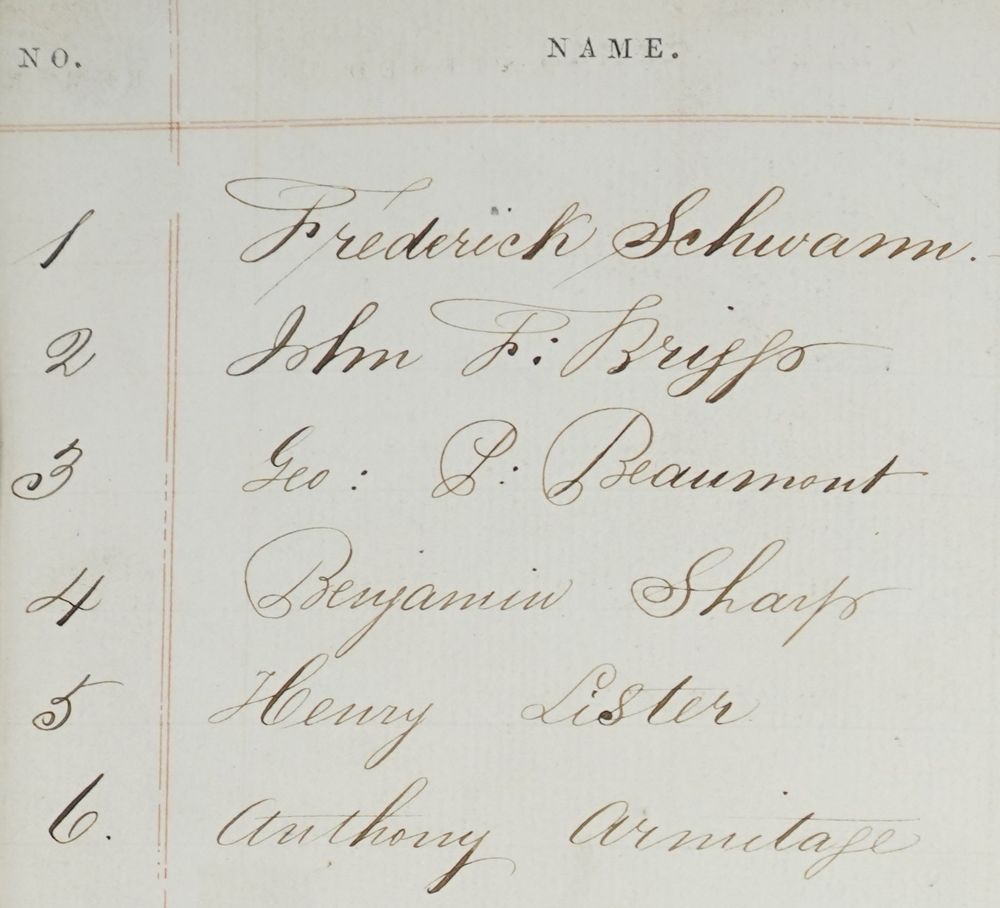 NO. NAME.
1 Frederick Schwann.
2 John F: Briggs
3 Geo: P: Beaumont
4 Benjamin Sharp
5 Henry Lister
6. Anthony Armitage